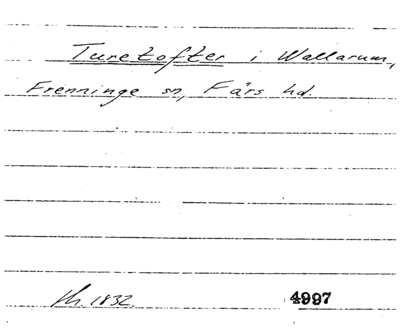 Turetofter i Wallarum,
Frenninge sn, Färs hd.
1832. 4997